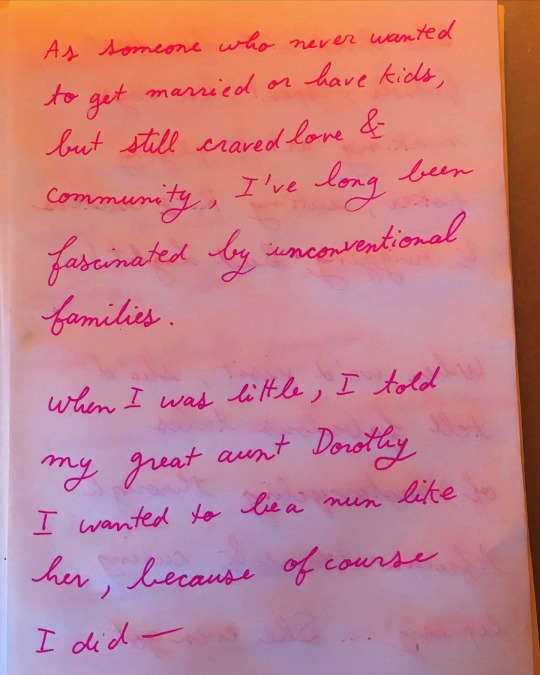 As someone who never wanted
to get married or have kids,
but still craved love &
community, I've long been
fascinated by unconventional
families.
When I was little, I told
my great aunt Dorothy
I wanted to be a nun like
her, because of course
I did —